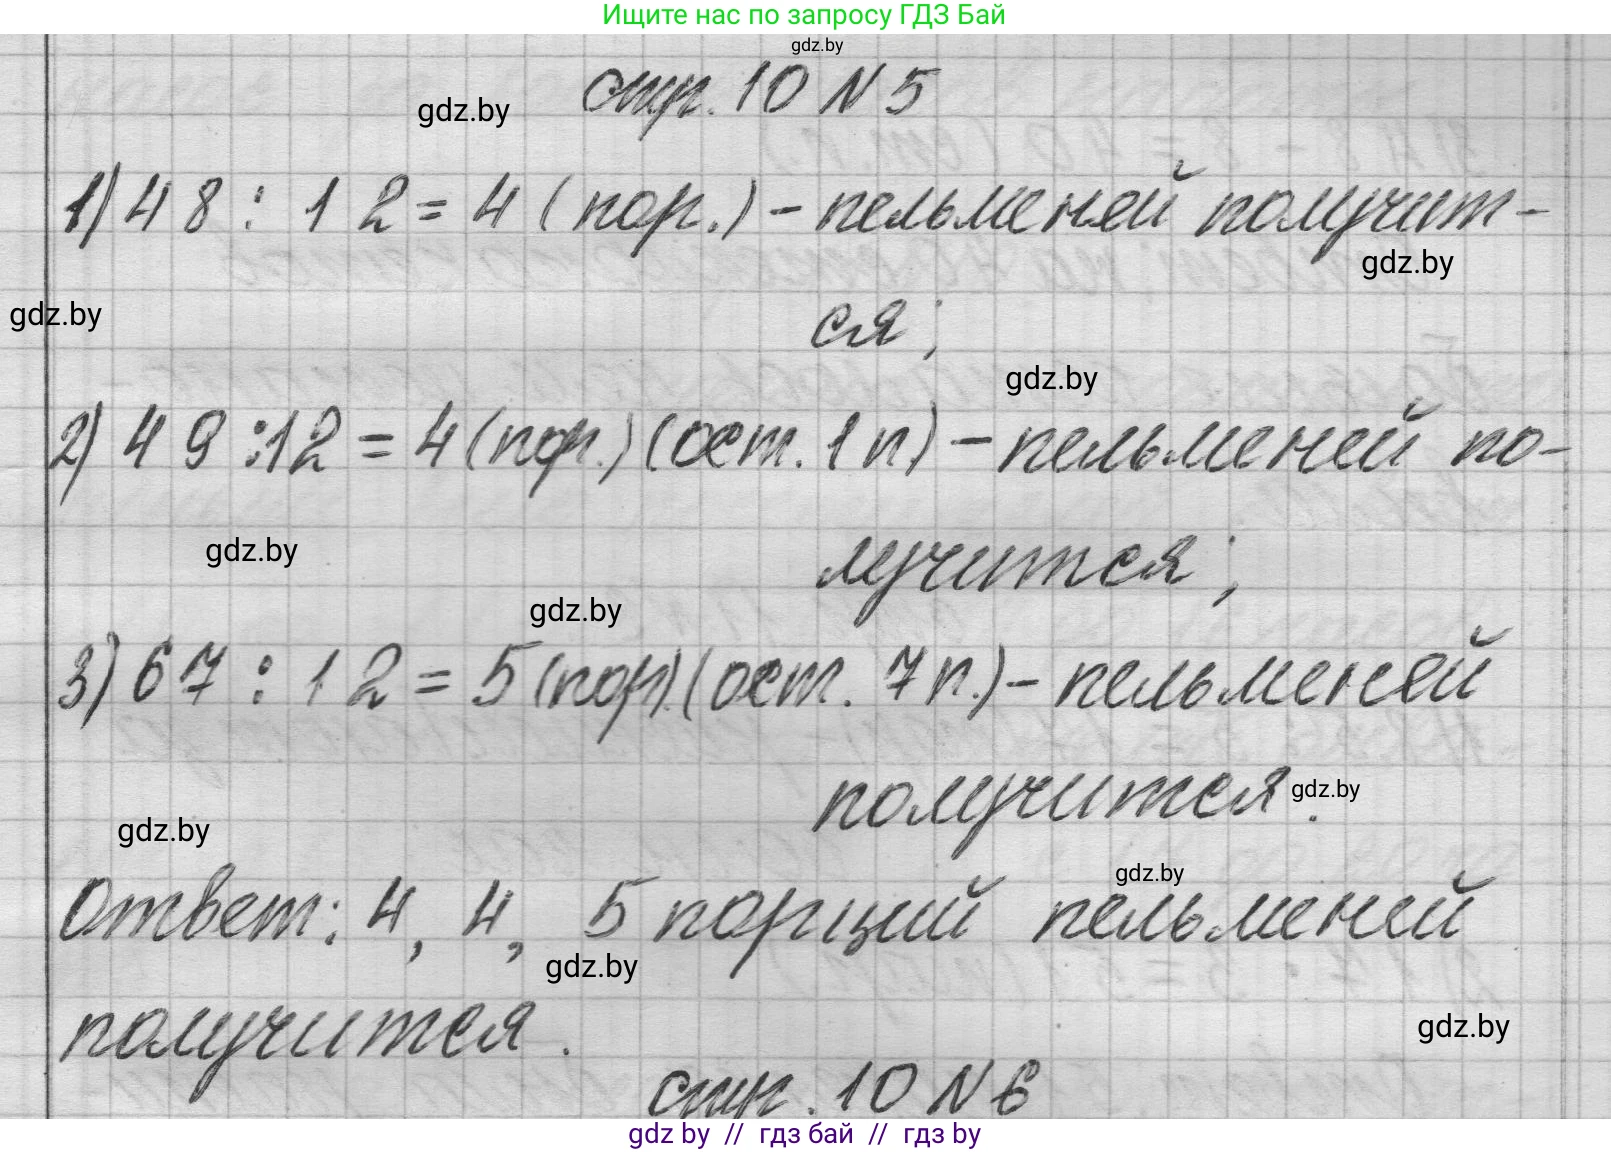 Ищите нас по запросу ГДЗ Бай
gdz.by
стр. 10 N 5
gdz.by
1) 48 : 12 = 4 (пор.) - пельменей получит-
gdz.by
gdz.by
ся;
gdz.by
2) 49 : 12 = 4 (пор.) (ост. 1 п) - пельменей по-
gdz.by
лучится;
gdz.by
3) 67 : 12 = 5 (пор). (ост. 7 п.) - пельменей
получится.
gdz.by
gdz.by
gdz.by
Ответ: 4, 4, 5 порций пельменей
gdz.by
получится.
gdz.by
стр. 10 N 6
gdz by // гдз бай // гдз by